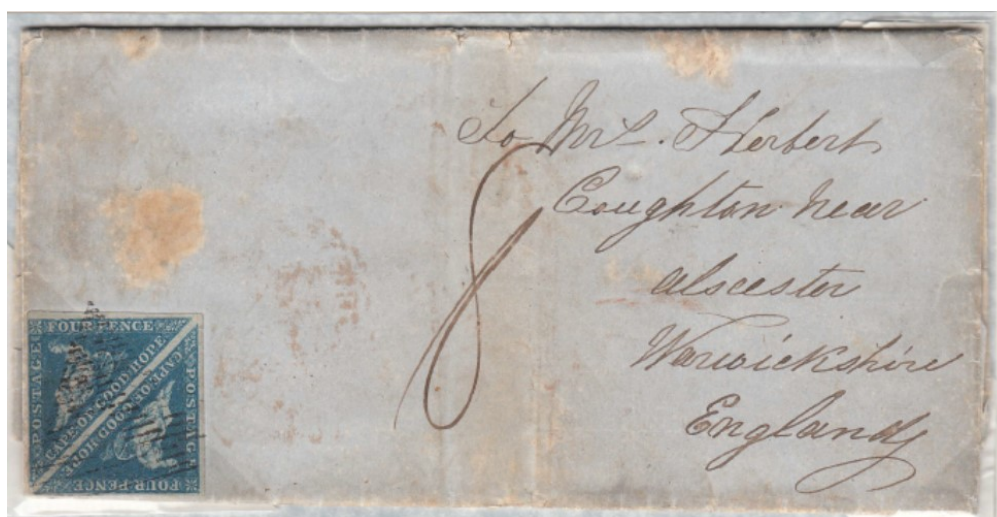 To Mrs. Herbert
Coughton near
Alcester
Warwickshire
England
8
FOUR PENCE
POSTAGE
CAPE OF GOOD HOPE
CAPE OF GOOD HOPE
POSTAGE
FOUR PENCE